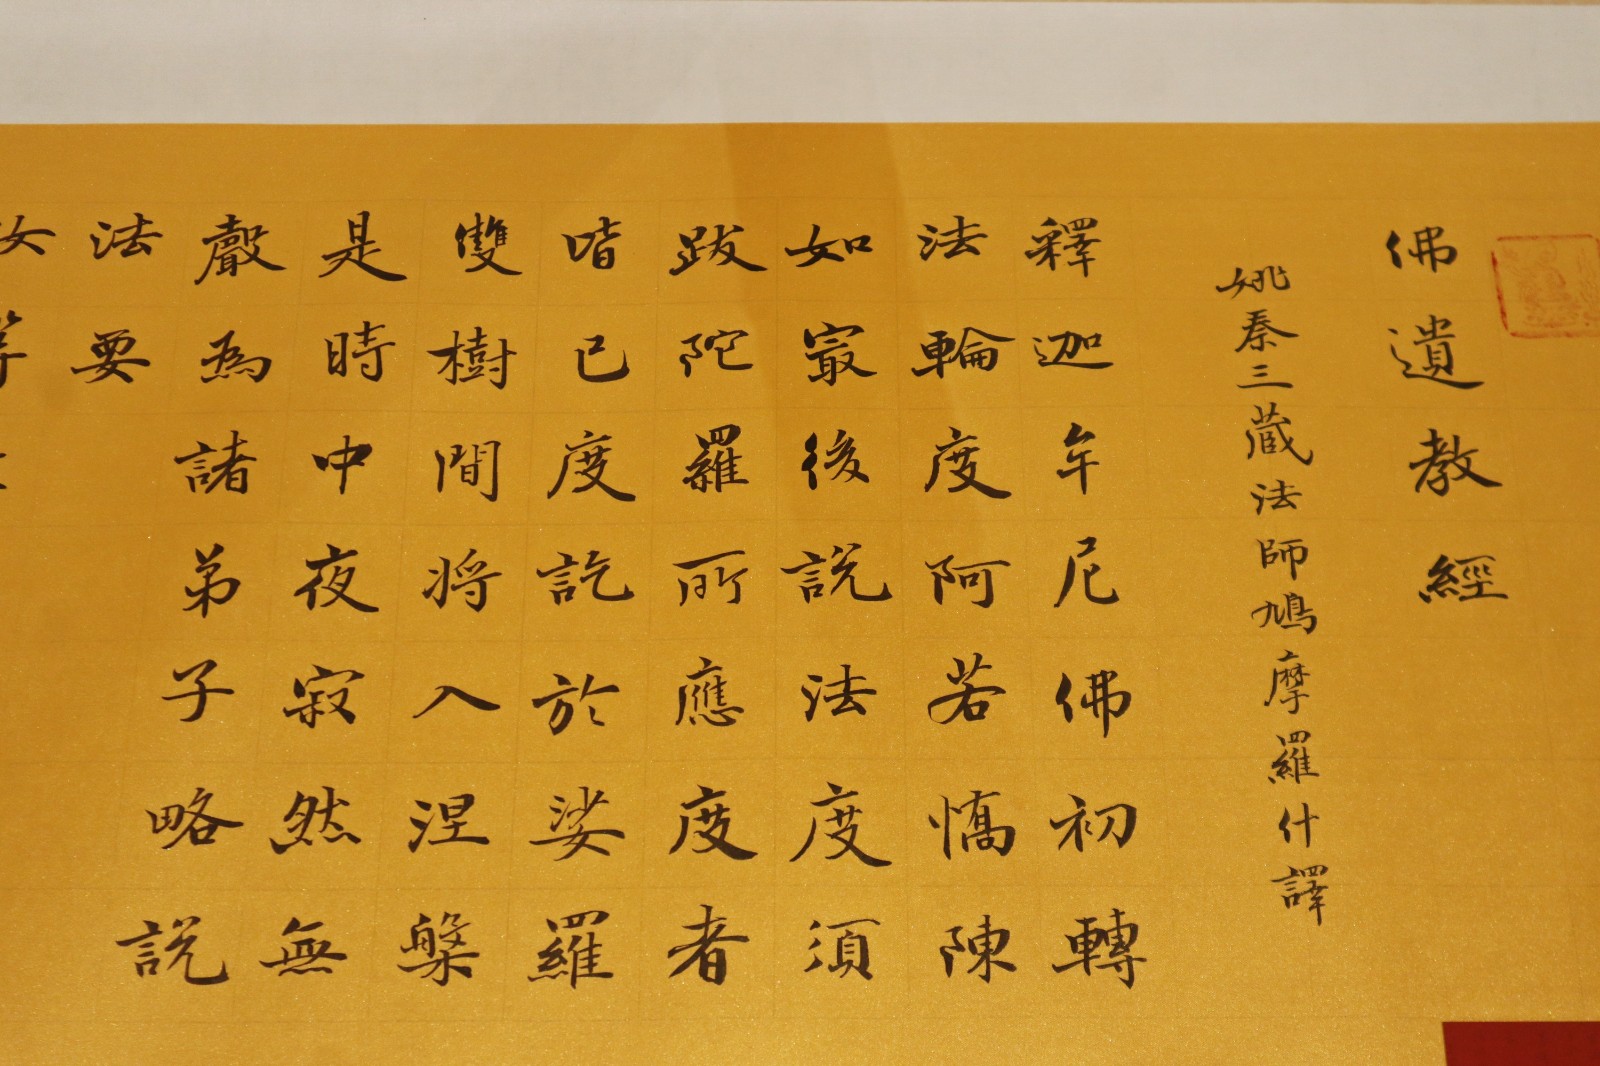 佛遺教經
姚秦三蔵法師鳩摩羅什譯
釋迦牟尼佛初轉
法輪度阿若憍陳
如㝡後說法度須
跋陀羅所應度者
皆已度訖於娑羅
雙樹間将入涅槃
是時中夜寂然無
聲為諸弟子略說
法要